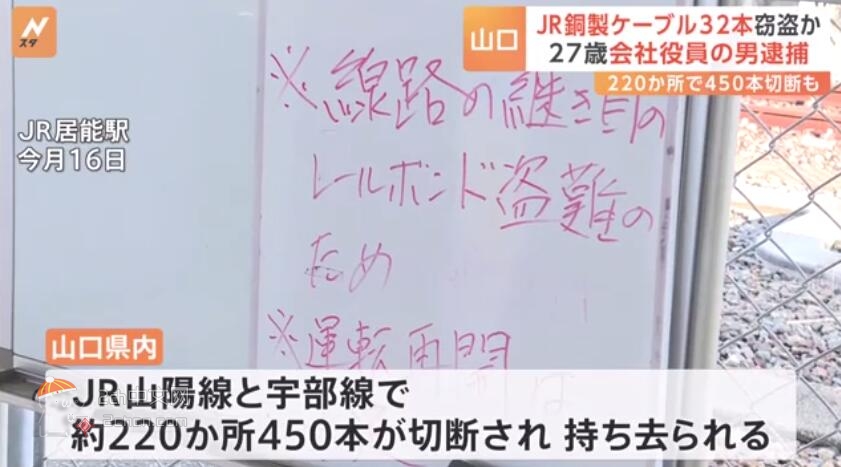 N
スタ
山口
JR銅製ケーブル32本窃盗か
27歳会社役員の男逮捕
220か所で450本切断も
JR居能駅
今月16日
※線路の継ぎ目の
レールボンド盗難の
ため
※運転再開は
山口県内
JR山陽線と宇部線で
約220か所450本が切断され 持ち去られる